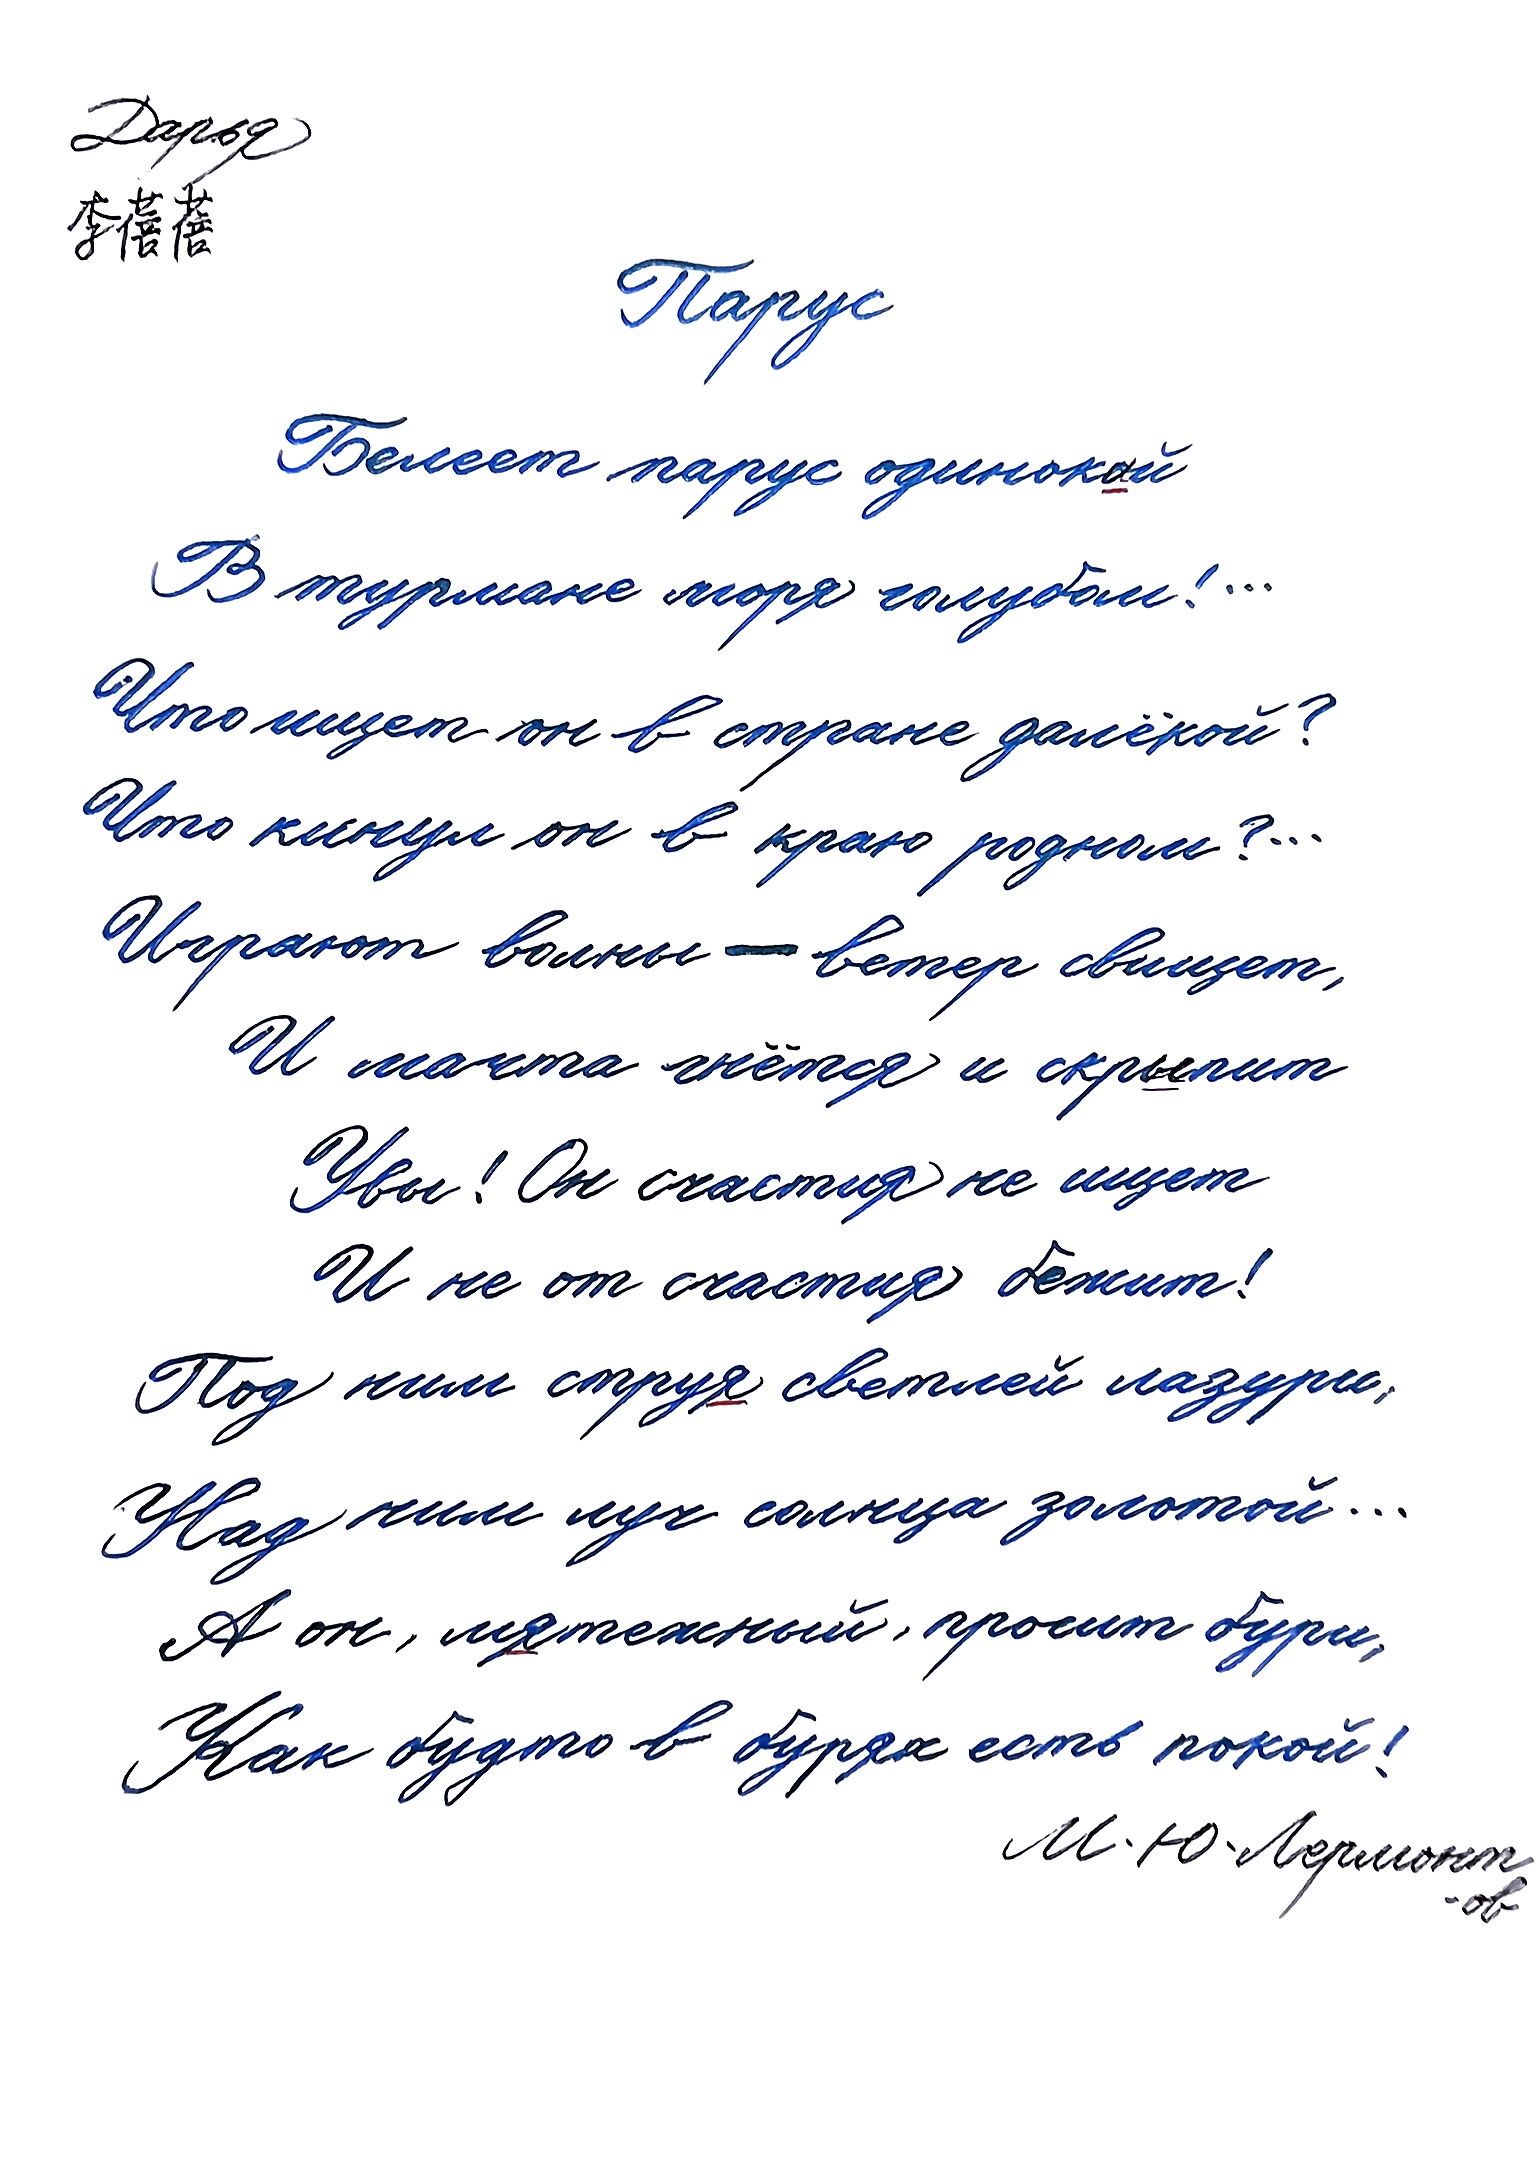 Дарья
李蓓蓓
Парус
Белеет парус одинокой
В турмане моря голубом!...
Что ищет он в стране далёкой?
Что кинул он в краю родном?...
Играют волны — ветер свищет,
И мачта гнётся и скрыпит
Увы! Он счастия не ищет
И не от счастия бежит!
Под ним струя светлей лазури,
Над ним луч солнца золотой...
А он, мятежный, просит бури,
Как будто в бурях есть покой!
М.Ю.Лермонт
-ов